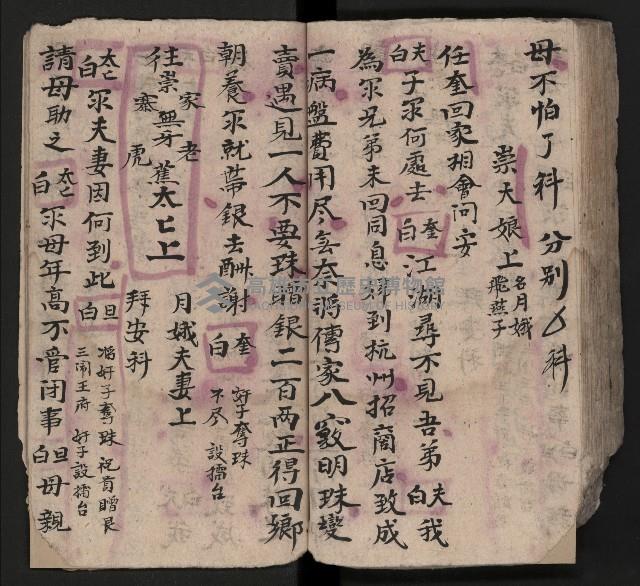 母不怕了科 分別又科
崇夫娘上 名月娥 飛燕子
任奎回家相會問安
夫白 子尔何處去 奎白 江湖尋不見吾弟 夫白 我
為尔兄弟未回同息 到杭州招商店致成
一病盤費用尽 奈將傳家八竅明珠變
賣遇見一人不要珠 贈銀二百両正得回鄉
朝養尔就帶銀去酬謝 奎白 好子奪珠 不尽 設擂台
月娥夫妻上
往崇無牙蕉太上 家老 寨虎
拜安科
白 尔夫妻因何到此 旦白 好子奪珠 祝貢贈艮 三鬧王府 好子設擂台
請母助之 白 尔母年高不管閉事 旦白 母親
高雄市立歷史博物館